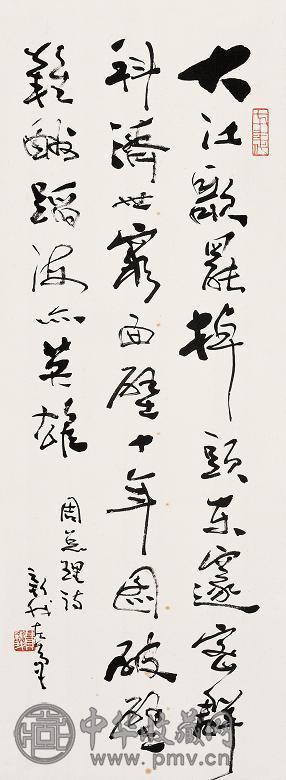 大江歌罢掉头东邃密群
科济世穷面壁十年图破壁
难酬蹈海亦英雄
周总理诗
中华收藏网
www.pmv.cn